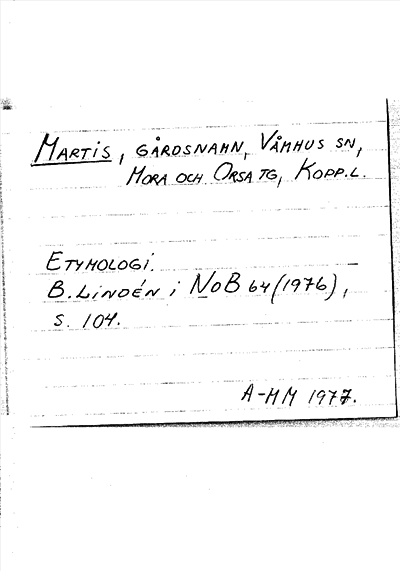 Martis, gårdsnamn, Våmhus sn,
Mora och Orsa tg, Kopp.l.
Etymologi.
B. Lindén i NoB 64 (1976),
s. 104.
A-MM 1977.